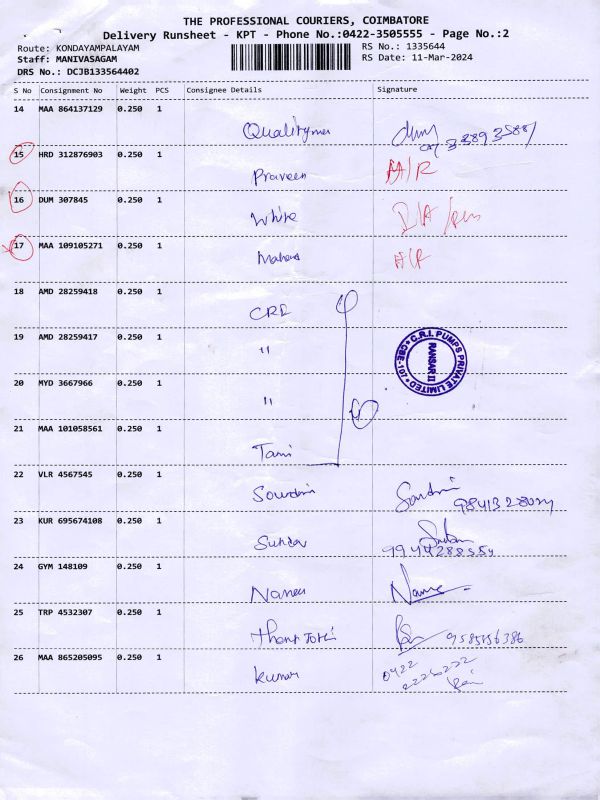 THE PROFESSIONAL COURIERS, COIMBATORE
Delivery Runsheet - KPT - Phone No.:0422-3505555 - Page No.:2
Route: KONDAYAMPALAYAM
Staff: MANIVASAGAM
DRS No.: DCJB133564402
RS No.: 1335644
RS Date: 11-Mar-2024
S No Consignment No Weight PCS Consignee Details Signature
14 MAA 864137129 0.250 1
15 HRD 312876903 0.250 1
Praveen
16 DUM 307845 0.250 1
White
17 MAA 109105271 0.250 1
18 AMD 28259418 0.250 1
19 AMD 28259417 0.250 1
"
20 MYD 3667966 0.250 1
"
C.R.I. PUMPS PRIVATE LIMITED
CBE-107
RANSAR II
21 MAA 101058561 0.250 1
22 VLR 4567545 0.250 1
23 KUR 695674108 0.250 1
9944288554
24 GYM 148109 0.250 1
25 TRP 4532307 0.250 1
26 MAA 865205095 0.250 1
kumar 0422